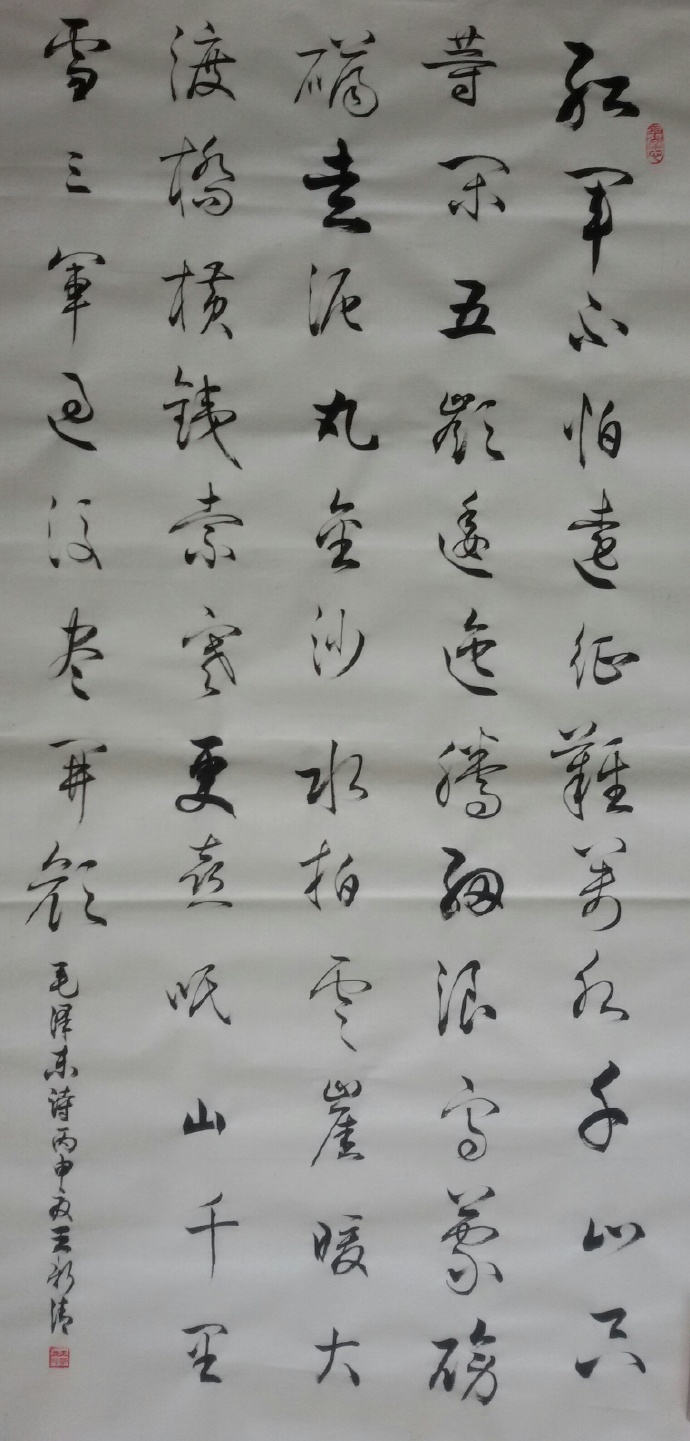 红军不怕远征難萬水千山只
等闲五嶺逶迤腾细浪乌蒙磅
礴走泥丸金沙水拍雲崖暖大
渡橋横鐵索寒更喜岷山千里
雪三軍过後尽開颜
毛泽东诗丙申夏王新清